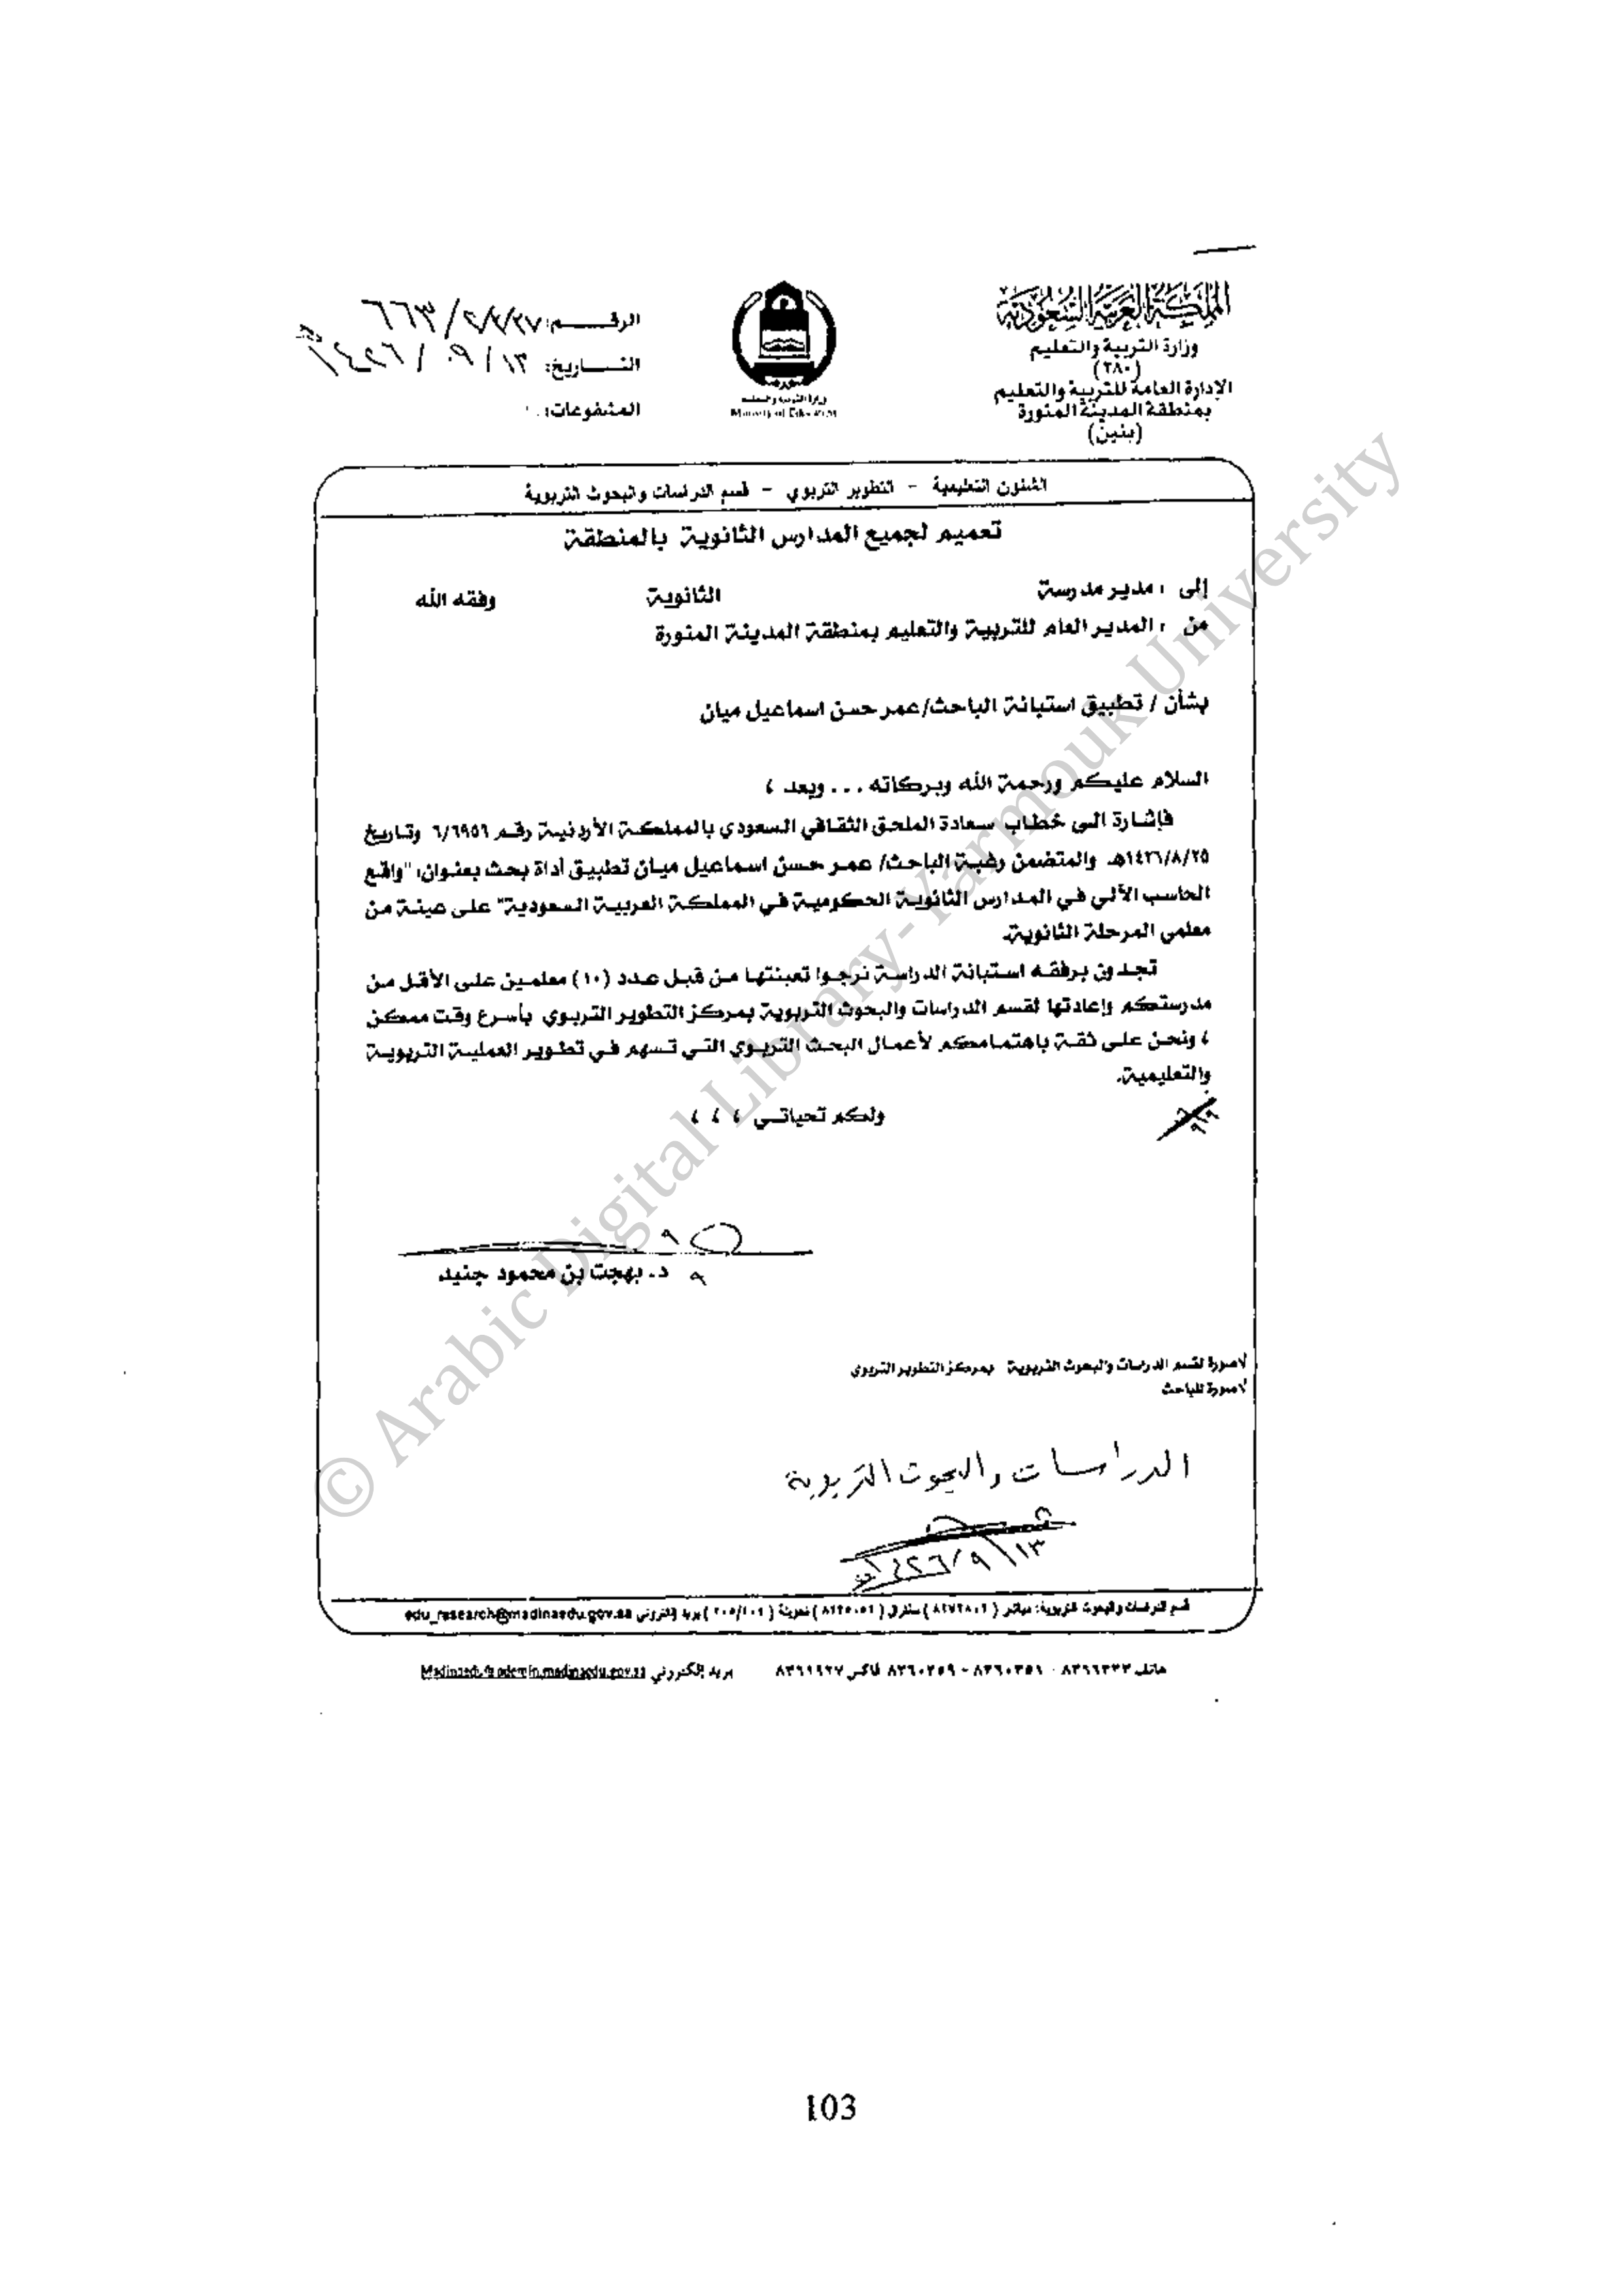 المملكة العربية السعودية
وزارة التربية والتعليم
(٢٨٠)
الإدارة العامة للتربية والتعليم
بمنطقة المدينة المنورة
(بنين)
وزارة التربية والتعليم
Ministry of Education
الرقــــم:
التـــاريخ: ١٣ / ٠٩ / ١٤٢٦هـ
المشفوعات:
الشئون التعليمية - التطوير التربوي - قسم الدراسات والبحوث التربوية
تعميم لجميع المدارس الثانوية بالمنطقة
إلى : مدير مدرسة الثانوية وفقه الله
من : المدير العام للتربية والتعليم بمنطقة المدينة المنورة
بشأن / تطبيق استبانة الباحث/عمر حسن اسماعيل ميان
السلام عليكم ورحمة الله وبركاته ... وبعد ،
فإشارة الى خطاب سعادة الملحق الثقافي السعودي بالمملكة الأردنية رقم ٦/٦٩٥٦ وتاريخ
١٤٢٦/٨/٢٥هـ والمتضمن رغبة الباحث/ عمر حسن اسماعيل ميان تطبيق أداة بحث بعنوان: "واقع
الحاسب الآلي في المدارس الثانوية الحكومية في المملكة العربية السعودية" على عينة من
معلمي المرحلة الثانوية.
تجدون برفقه استبانة الدراسة نرجوا تعبئتها من قبل عدد (١٠) معلمين على الأقل من
مدرستكم وإعادتها لقسم الدراسات والبحوث التربوية بمركز التطوير التربوي بأسرع وقت ممكن
، ونحن على ثقة باهتمامكم لأعمال البحث التربوي التي تسهم في تطوير العملية التربوية
والتعليمية.
ولكم تحياتي ، ، ،
د. بهجت بن محمود جنيد
لاصورة لقسم الدراسات والبحوث التربوية بمركز التطوير التربوي
لاصورة للباحث
الدراسات والبحوث التربوية
١٤٢٦/٩/١٣هـ
قسم الدراسات والبحوث التربوية: مباشر سنترال تحويلة بريد إلكتروني edu_research@madinaedu.gov.sa
هاتف ٨٣٦٦٣٣٣ - ٨٣٦٠٣٥١ - ٨٣٦٠٢٥٩ فاكس ٨٣٦١٩٢٧ بريد إلكتروني
© Arabic Digital Library-Yarmouk University
103